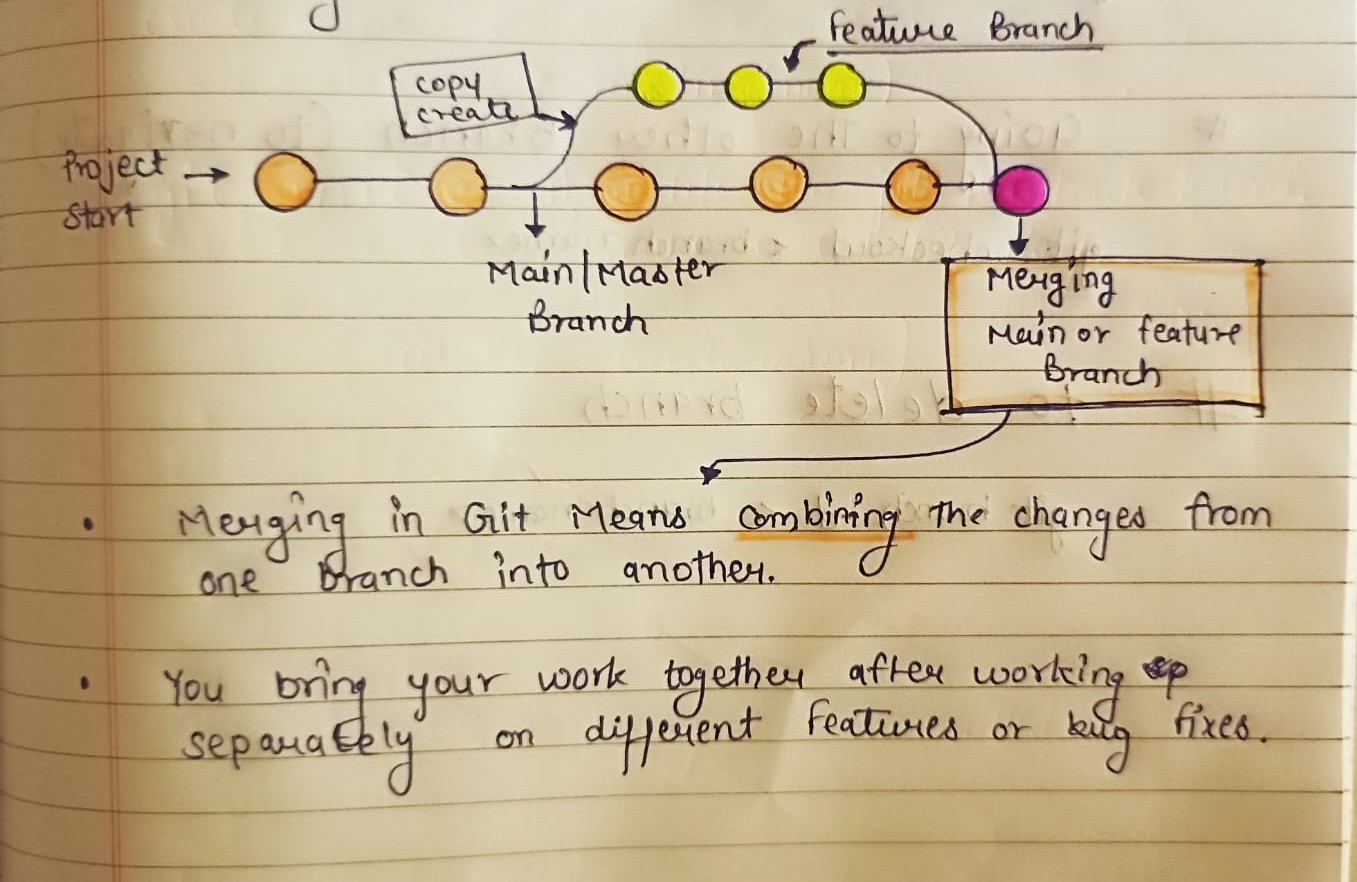 Feature Branch
copy
create
Project
Start
Main/Master
Branch
Merging
Main or feature
Branch
• Merging in Git Means combining the changes from
one branch into another.
• You bring your work together after working
separately on different features or bug fixes.